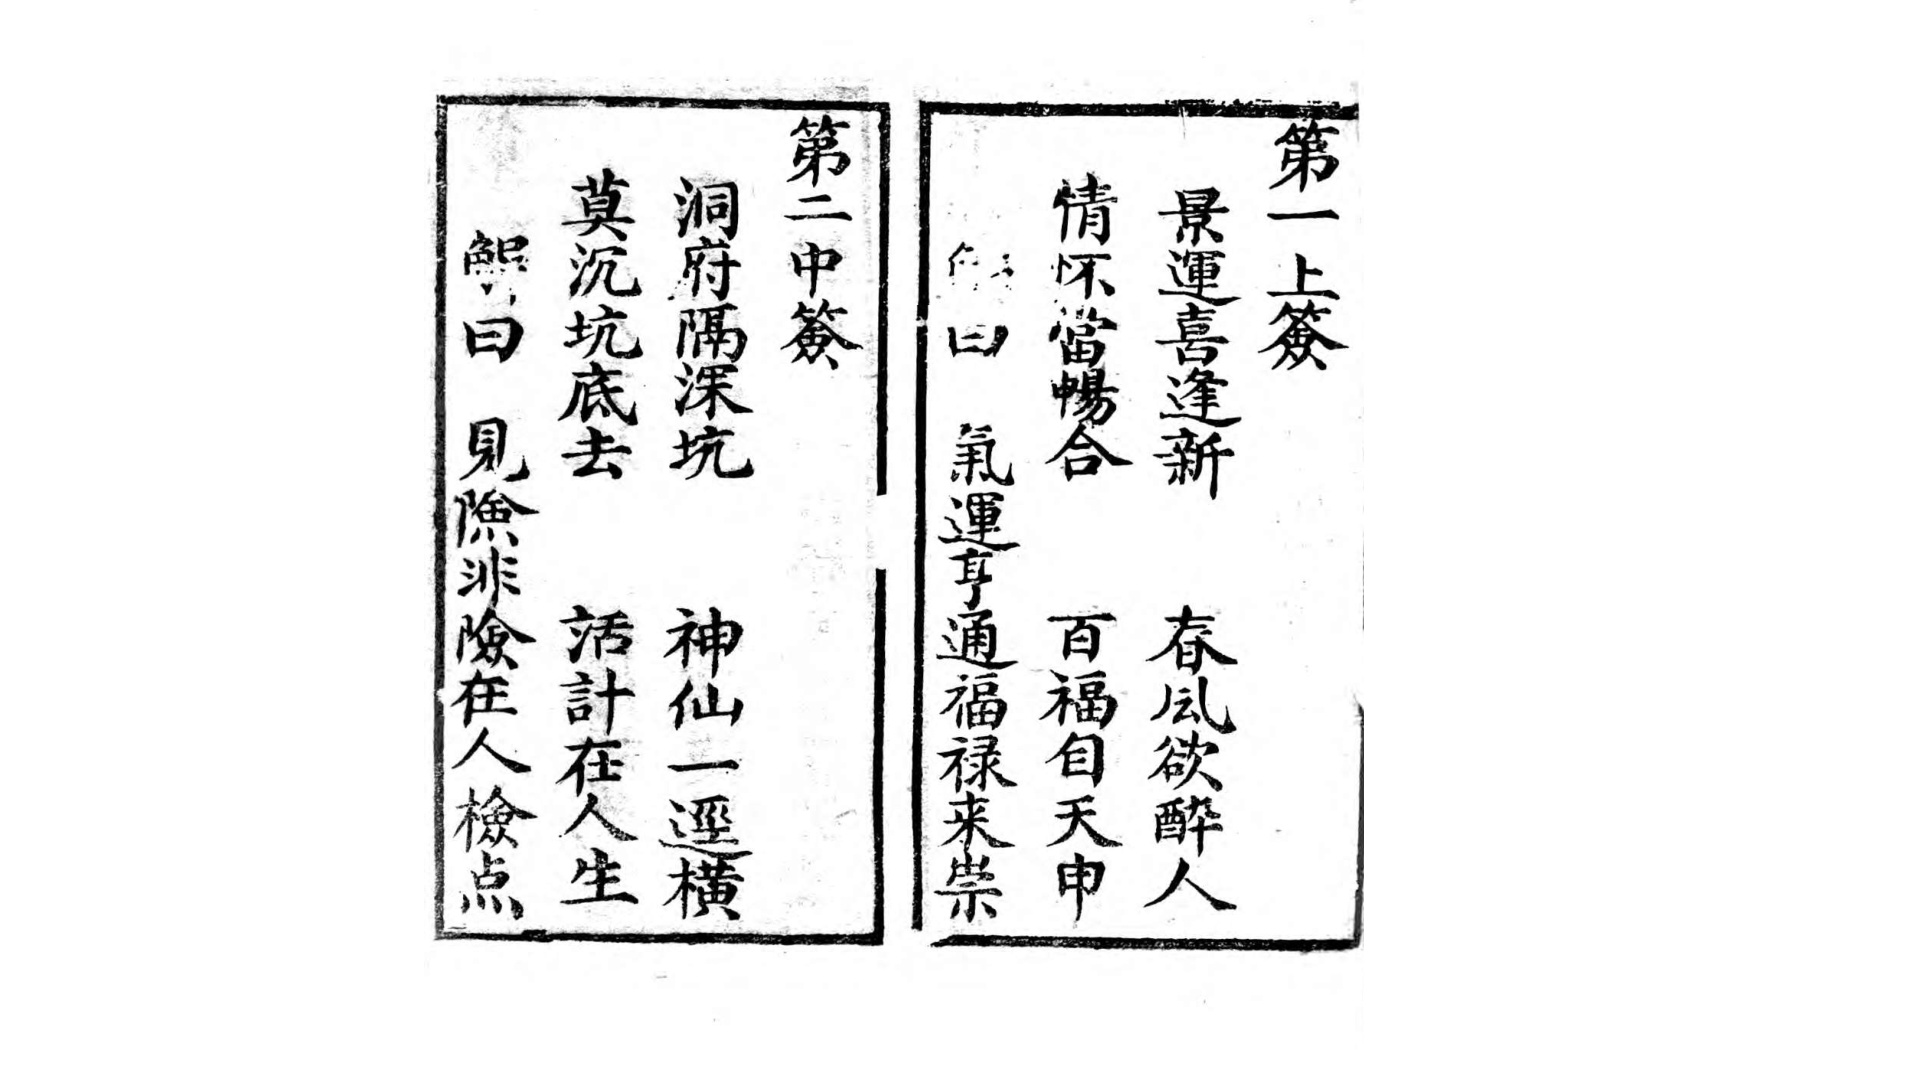 第一上簽
景運喜逢新　春风欲醉人
情怀當暢合　百福自天申
曰　氣運亨通福禄来崇
第二中簽
洞府隔深坑　神仙一逕橫
莫沉坑底去　活計在人生
解曰　見險非險在人檢点